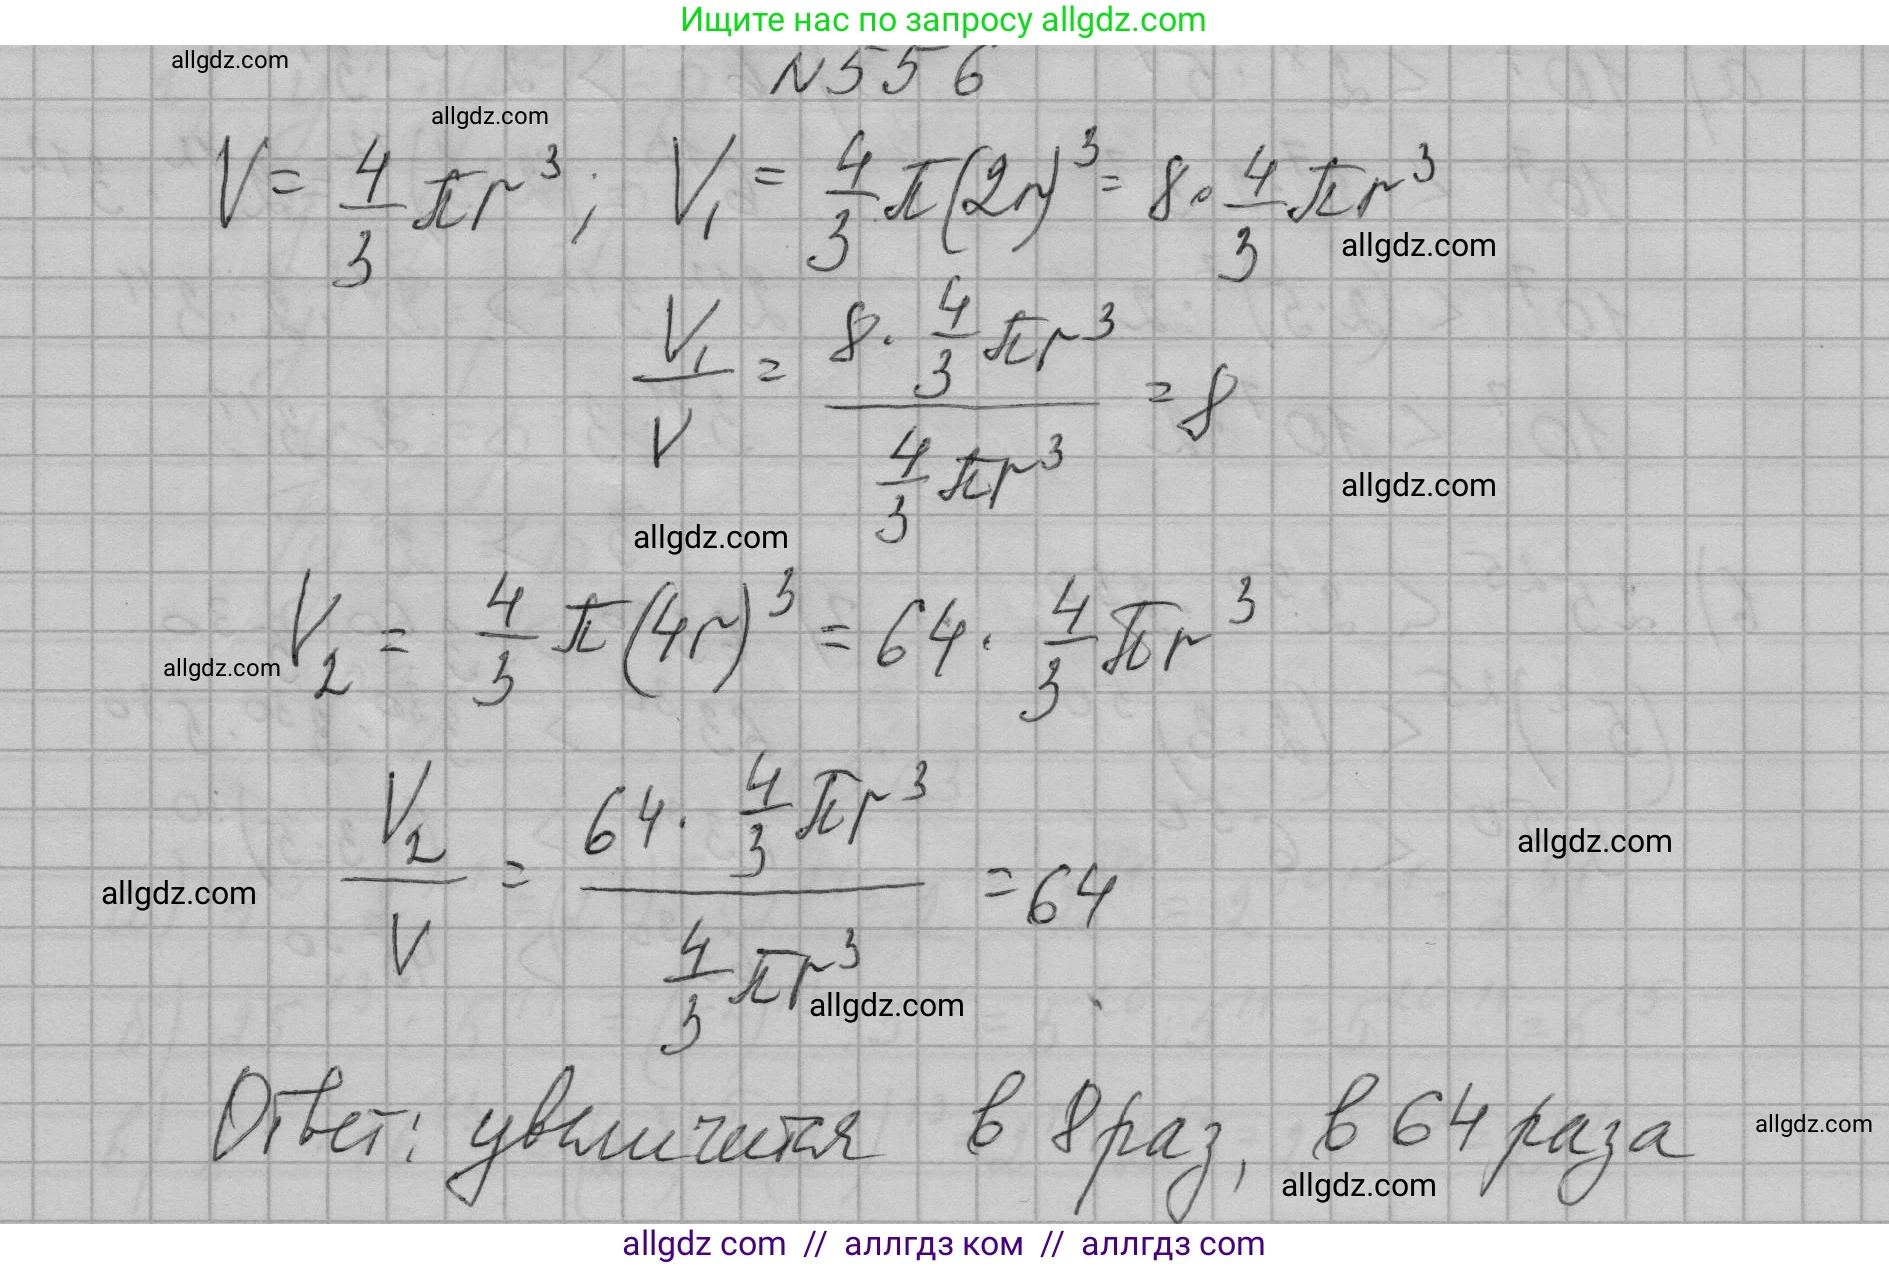 Ищите нас по запросу allgdz.com
allgdz.com
N556
allgdz.com
V = 4/3 πr³; V₁ = 4/3 π(2r)³ = 8 · 4/3 πr³
allgdz.com
V₁/V = (8 · 4/3 πr³)/(4/3 πr³) = 8
allgdz.com
allgdz.com
V₂ = 4/3 π(4r)³ = 64 · 4/3 πr³
allgdz.com
V₂/V = (64 · 4/3 πr³)/(4/3 πr³) = 64
allgdz.com
allgdz.com
allgdz.com
Ответ: увеличится в 8 раз, в 64 раза
allgdz.com
allgdz.com
allgdz com // аллгдз ком // аллгдз com